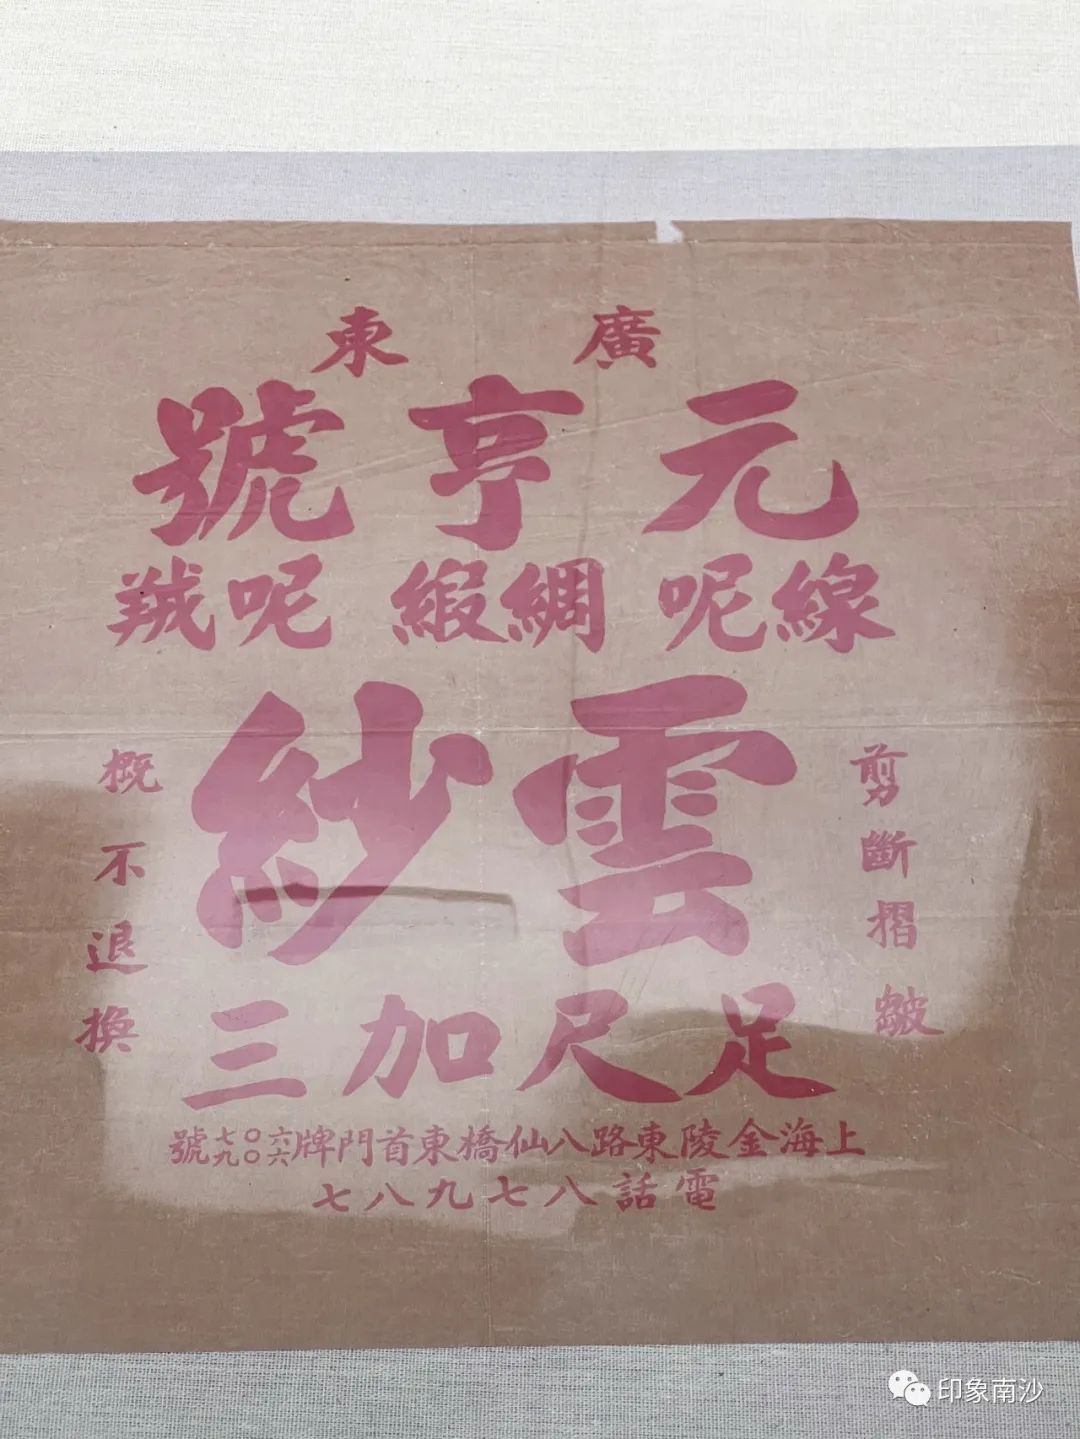 廣東
元亨號
線呢 綢緞 呢羢
剪斷摺皺
雲紗
概不退換
足尺加三
上海金陵東路八仙橋東首門牌六〇七六〇九號
電話八七九八七
印象南沙